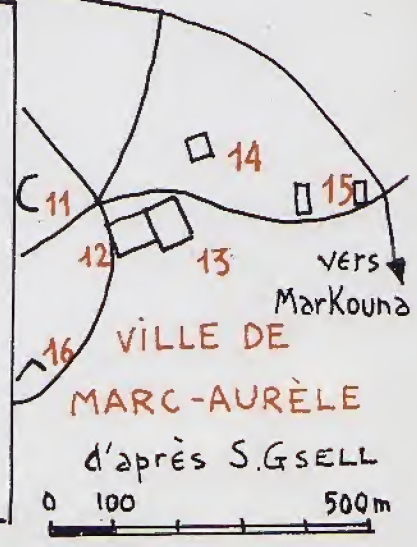 14
15
11
12
13
vers
MarKouna
16
VILLE DE
MARC-AURÈLE
d'après S.GSELL
0 100 500m